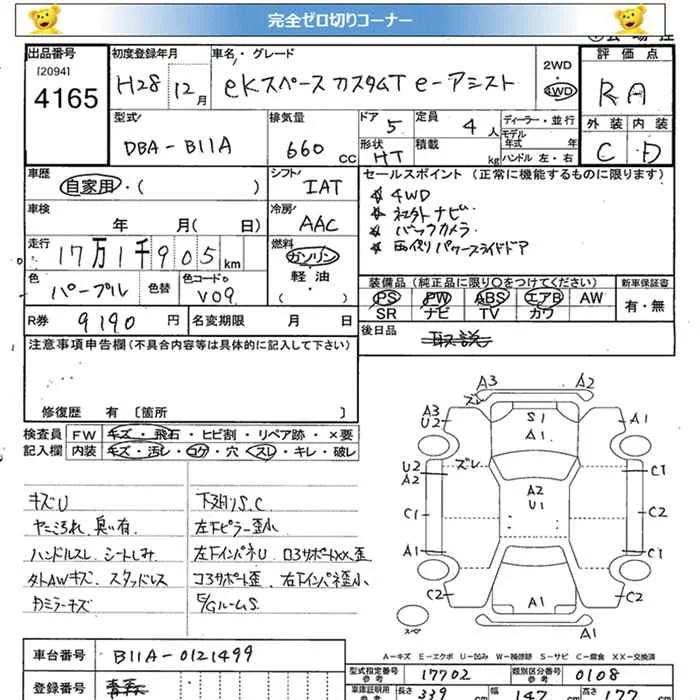 完全ゼロ切りコーナー
出品番号
[2094]
4165
初度登録年月
H28 12 月
車名・グレード
eKスペース カスタムT e-アシスト
2WD
4WD
評価点
RA
外装 内装
C D
型式
DBA-B11A
排気量
660 cc
ドア 5
形状 HT
定員 4 人
積載 kg
ディーラー・並行
モデル
年式 年
ハンドル 左・右
車歴
自家用・( )
シフト
IAT
車検
年 月( 日)
冷房
AAC
走行
17万1千905 km
燃料
ガソリン
軽・油
( )
色
パープル
色替
色コードNo
V09
R券 9190 円
名変期限 月 日
セールスポイント(正常に機能するものに限ります)
4WD
社外ナビ
バックカメラ
両側パワースライドドア
装備品(純正品に限り○をつけてください)
PS PW ABS エアB AW
SR ナビ TV カワ
新車保証書
有・無
後日品
取説
注意事項申告欄(不具合内容等は具体的に記入して下さい)
修復歴 有 [箇所 ]
検査員 FW キズ・飛石・ヒビ割・リペア跡・×要
記入欄 内装 キズ・汚レ・コゲ・穴・スレ・キレ・破レ
キズU
ヤニ汚れ、臭い有
ハンドルスレ、シートしみ
外AWキズ、スタッドレス
カミラーキズ
下廻りS.C
左下ピラー歪小
左下インパネU ロ3サポートXX.歪
コ3サポート歪、右下インパネ歪小
E/GルームS
A3 A2
ズレ
A3
U2
S1
A1
A1
U2
A2
ズレ
C1
A2
U1
C1
C2
A1
C1
C2
A1
C2
スペア
A-キズ E-エクボ U-凹み W-補修跡 S-サビ C-腐食 XX-交換済
車台番号 B11A-0121499
登録番号 青森
型式指定番号
参考
17702
類別区分番号
参考
0108
車庫証明用
参考
長さ 339 cm 幅 147 cm 高さ 177 cm